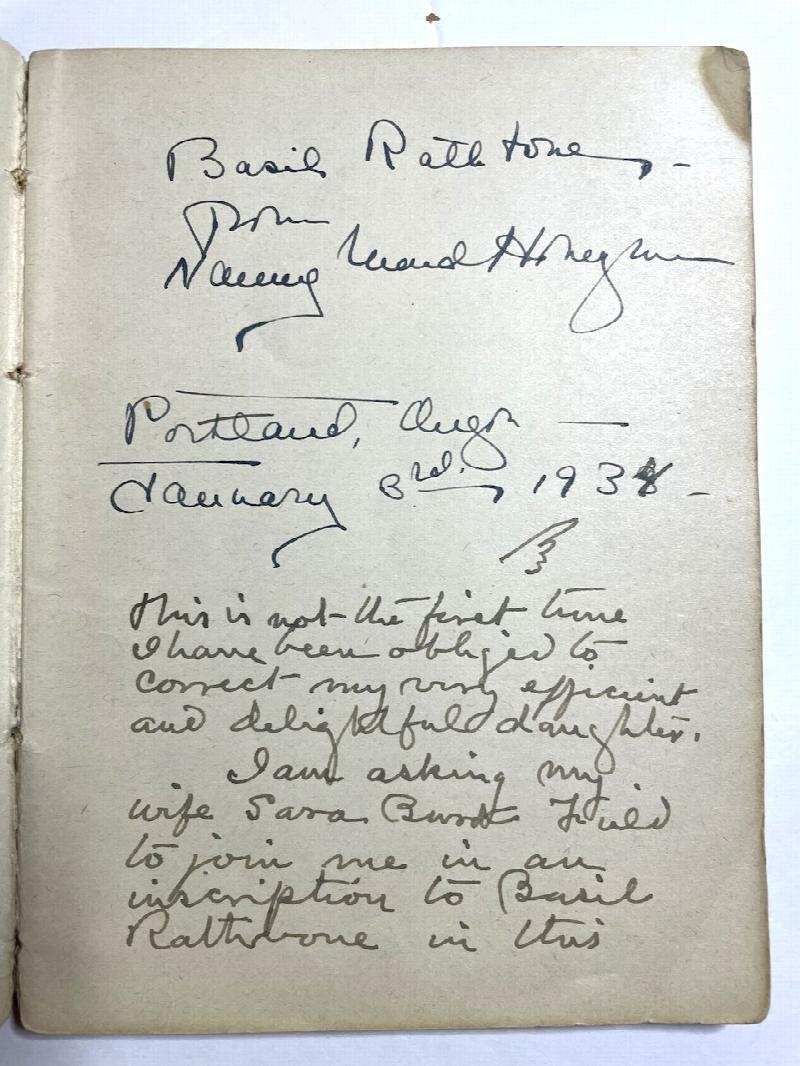 Basil Rathbone, -
from
Nanny Wood Honeyman
Portland, Oregon —
January 3rd, 1934 -
This is not the first time
I have been obliged to
correct my very efficient
and delightful daughter.
I am asking my
wife Sara Bard Field
to join me in an
inscription to Basil
Rathbone in this